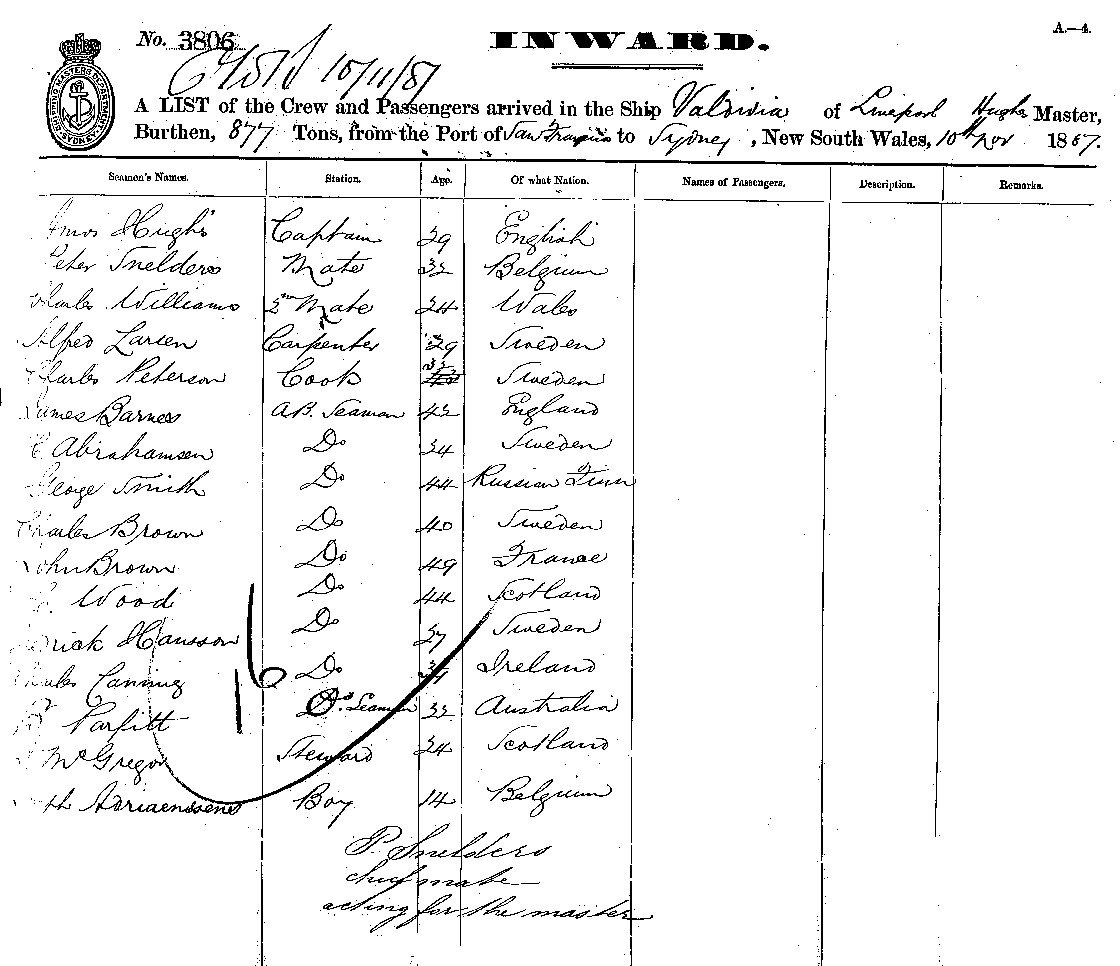 No. 3806 INWARD. A.—4.
10/11/87
A LIST of the Crew and Passengers arrived in the Ship Valdivia of Liverpool Hughes Master,
Burthen, 877 Tons, from the Port of San Francisco to Sydney, New South Wales, 10th Nov 1887.
Seamen's Names. Station. Age. Of what Nation. Names of Passengers. Description. Remarks.
Amos Hughs Captain 29 English
Peter Snelders Mate 32 Belgium
Charles Williams 2nd Mate 24 Wales
Alfred Larsen Carpenter 29 Sweden
Charles Peterson Cook 32 Sweden
James Barnes A.B. Seaman 42 England
Abrahamsen Do 34 Sweden
George Smith Do 44 Russian Finn
Charles Brown Do 40 Sweden
John Brown Do 49 France
Wood Do 44 Scotland
Hansson Do 37 Sweden
Charles Canning Do Ireland
Parfitt O. Seaman 32 Australia
McGregor Steward 24 Scotland
Adriaenssens Boy 14 Belgium
16
P. Snelders
chief mate
acting for the master